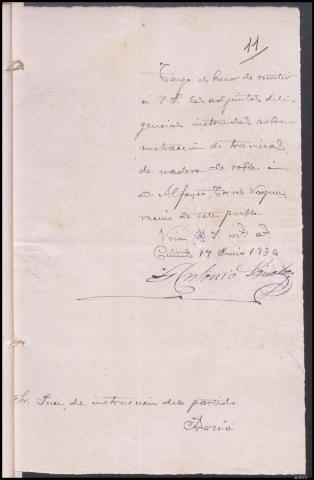 11
Tengo el honor de remitir
á V.S. las adjuntas dili-
gencias instruidas sobre
sustracción de traviesas
de madera de roble á
D. Alfonso Torres Vazquez
vecino de este pueblo.
Viva V. S. m. a.
17 Junio 1.939
Antonio
Sr. Juez de instrucción del partido